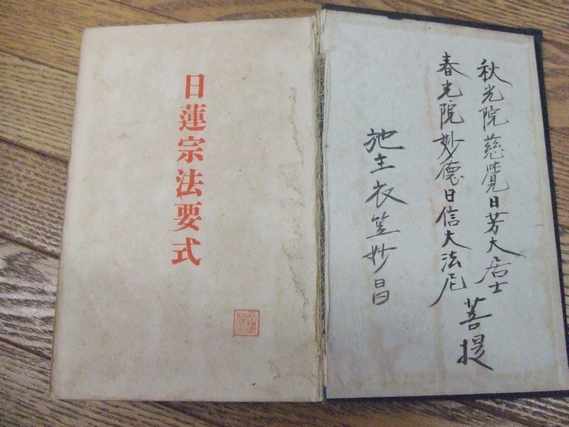 秋光院慈覺日芳大居士
春光院妙德日信大法尼
菩提
施主衣笠妙昌
日蓮宗法要式